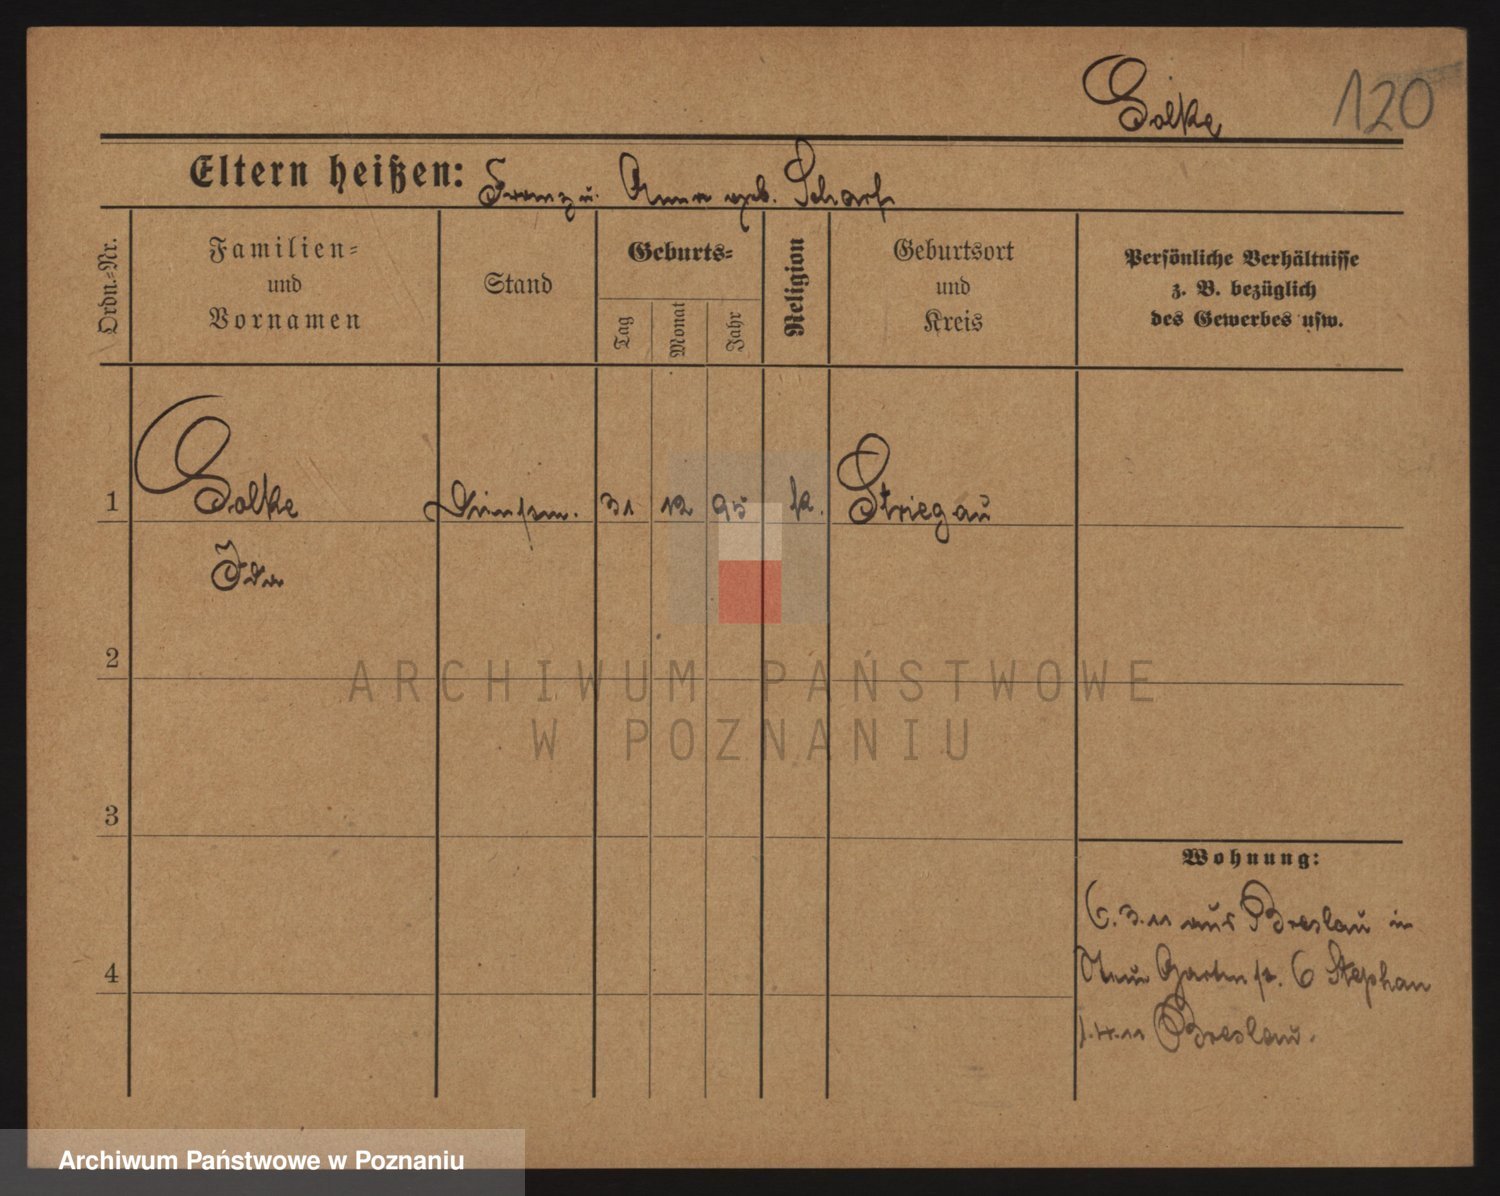 Golke 120
Eltern heißen: Franz u. Anna geb. Scharf
Ordn.-Nr.
Familien-
und
Vornamen
Stand
Geburts-
Tag
Monat
Jahr
Religion
Geburtsort
und
Kreis
Persönliche Verhältnisse
z. B. bezüglich
des Gewerbes usw.
1 Golke 31 12 95 k. Striegau
Ida
2
ARCHIWUM PAŃSTWOWE
W POZNANIU
3
Wohnung:
6.3.11 aus Breslau in
4 Neue Gartenstr. 6 Stephan
1.4.11 Breslau.
Archiwum Państwowe w Poznaniu